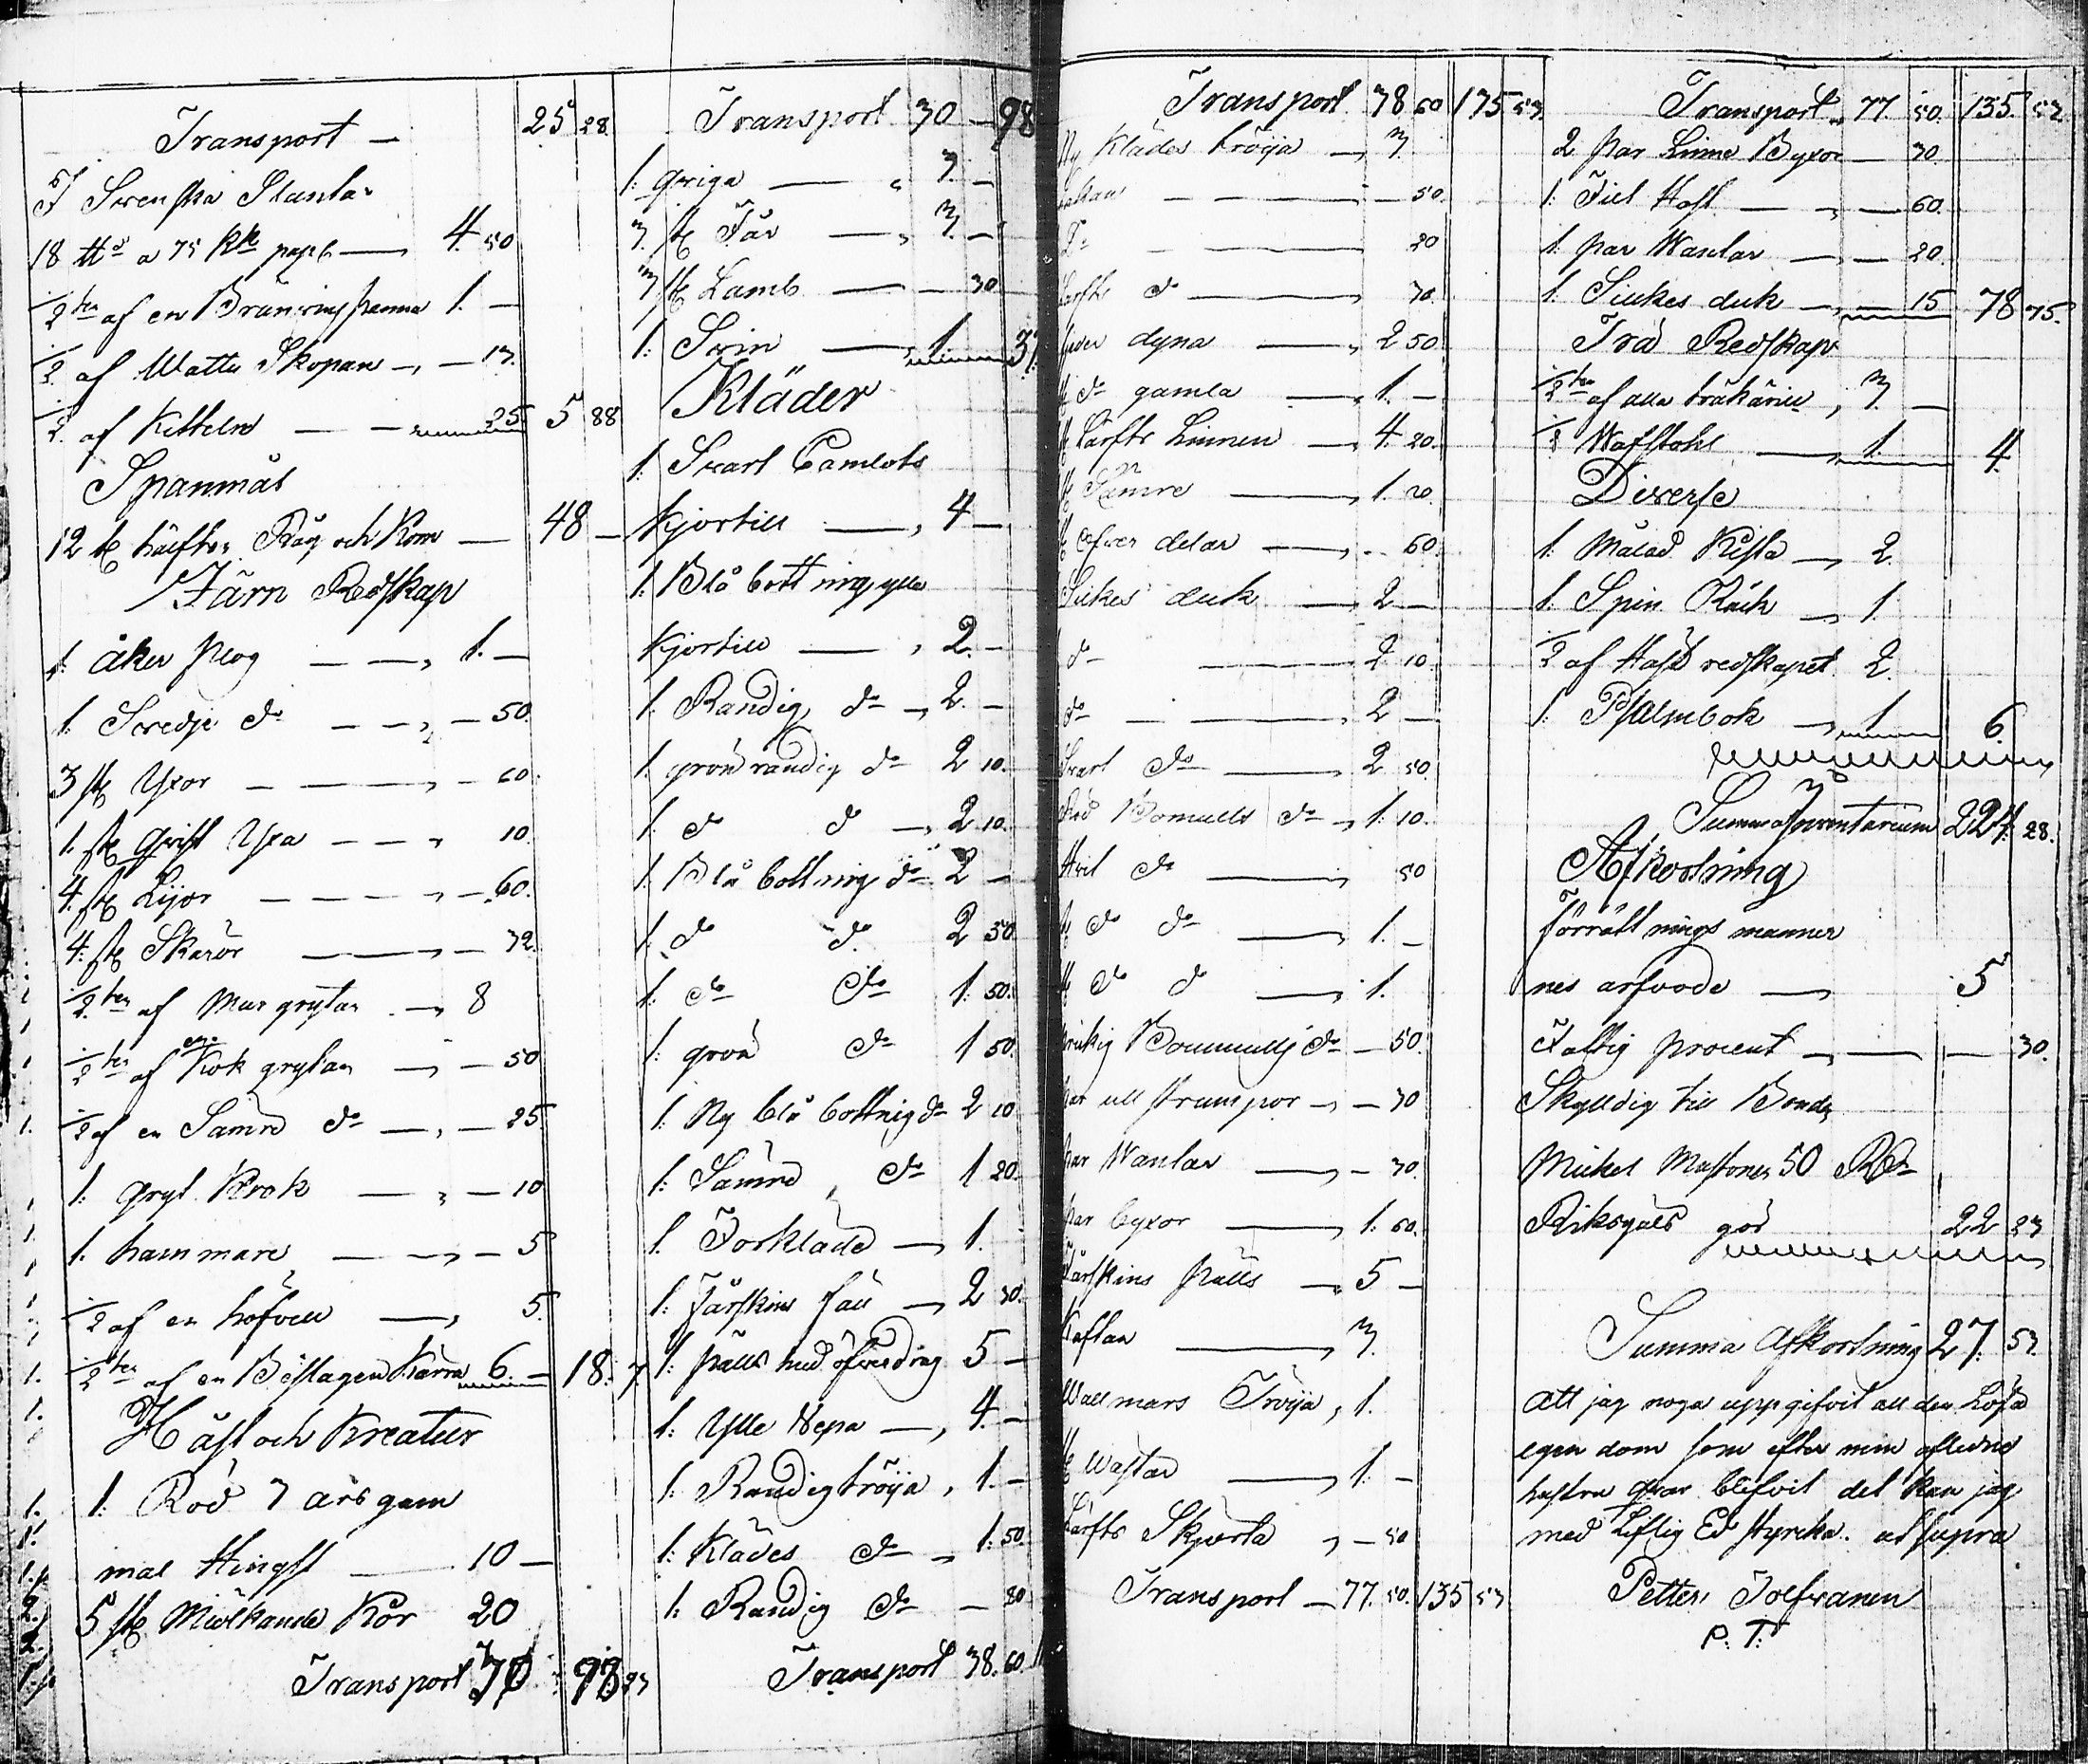 Transport — 25 28
Svenska Slantar
18 ℔ a 75 Kk — 4. 50
1/2ten af en Bränvins panna 1. —
1/2 af Watte Skopan — 13.
1/2 af Kitteln — 25 5 88
Spanmål
12 hälften Råg och Korn — 48 —
Järn Redskap
1. åker plog — 1. —
1. Svedje do — 50.
3 st Yxor — 60.
1. st qvist Yxa — 10.
4. st Lijor — 60.
4. st Skäror — 32.
1/2ten af Mur grytan — 8
1/2ten af en Kok grytan — 50
1/2 af en Sämre do — 25
1. gryt Krok — 10
1. hammare — 5
1/2 af en höfvell — 5.
1/2ten af en Beslagen Kärra 6. — 18. 7.
Häst och Kreatur
1. Röd 7 års gam
mal Hingst — 10 —
5 st Miölkande Kor 20
Transport 30 98 23
Transport 30 — 98
1. qviga — 3. —
3. st Får — 3. —
3 st Lamb — 30
1. Svin — 1. 37
Kläder
1. Svart Camlots
Kjortill — 4 —
1. Blå bottning ylle
Kjortill — 2. —
1. Randig do — 2 —
1. grön randig do 2 10.
1. do do — 2 10.
1. Blå bottning do 2 —
1. do do 2 50
1. do do 1 50.
1. grön do 1 50.
1. Ny blå bottnig do 2 10
1. Sämre do 1 20.
1. Förkläde — 1.
1. Fårskins fäll — 2 30.
1. pälls med öfverdrag 5 —
1. Ylle Vepa — 4. —
1. Randig tröija 1. —
1. Klädes do — 1. 50.
1. Randig do — 80
Transport 38. 60.
Transport 38 60 135 53.
Ny Klädes tröija — 3.
— 50.
Do — 20
Lärfts do — 30
dyna — 2 50
do gamla — 1. —
Lärfts Linnen — 4. 20.
Sämre — 1. 20
öfver delar — 60.
Silkes duk — 2 —
do — 2 10.
do — 2 —
Svart do — 2 50
Röd Bomulls do — 1. 10.
Hvit do — 50
do do — 1. —
do do — 1.
Bomulls do — 50.
par ull strumpor — 30
par Wantar — 30.
par byxor — 1. 60.
Fårskins pälls — 5 —
Kaftan — 3.
Wallmars Tröija, 1.
Wästar — 1. —
Lärfts Skjorta — 50
Transport — 77. 50. 135 53
Transport 77. 50. 135. 53
2 par Linne Byxor — 30
1. Filt Hatt — 60.
1. par Wantar — 20.
1. Silkes duk — 15 78 75.
Trä Redskap
1/2ten af alla träkärill, 3. —
1/2 Wäfstohl — 1. 4.
Diverse
1. Målad Kista — 2.
1. Spin Råck — 1
1/2 af Häst redskapet 2.
1. Psalmbok — 1 6.
Summa Inventarium 224. 28.
Afkortning
förrättnings männer
nes arfvode — 5
Fattig procent — 30.
Skylldig till Bonden
Mickel 50 Rd
Riksgäls gör 22 23
Summa Afkortning 27. 53.
Att jag noga uppgifvit all den Lösa
egendom som efter min aflidne
hustru qvar blifvit det kan jag
med Liflig Ed styrcka. ut supra
Petter Tolfvanen
P: T: